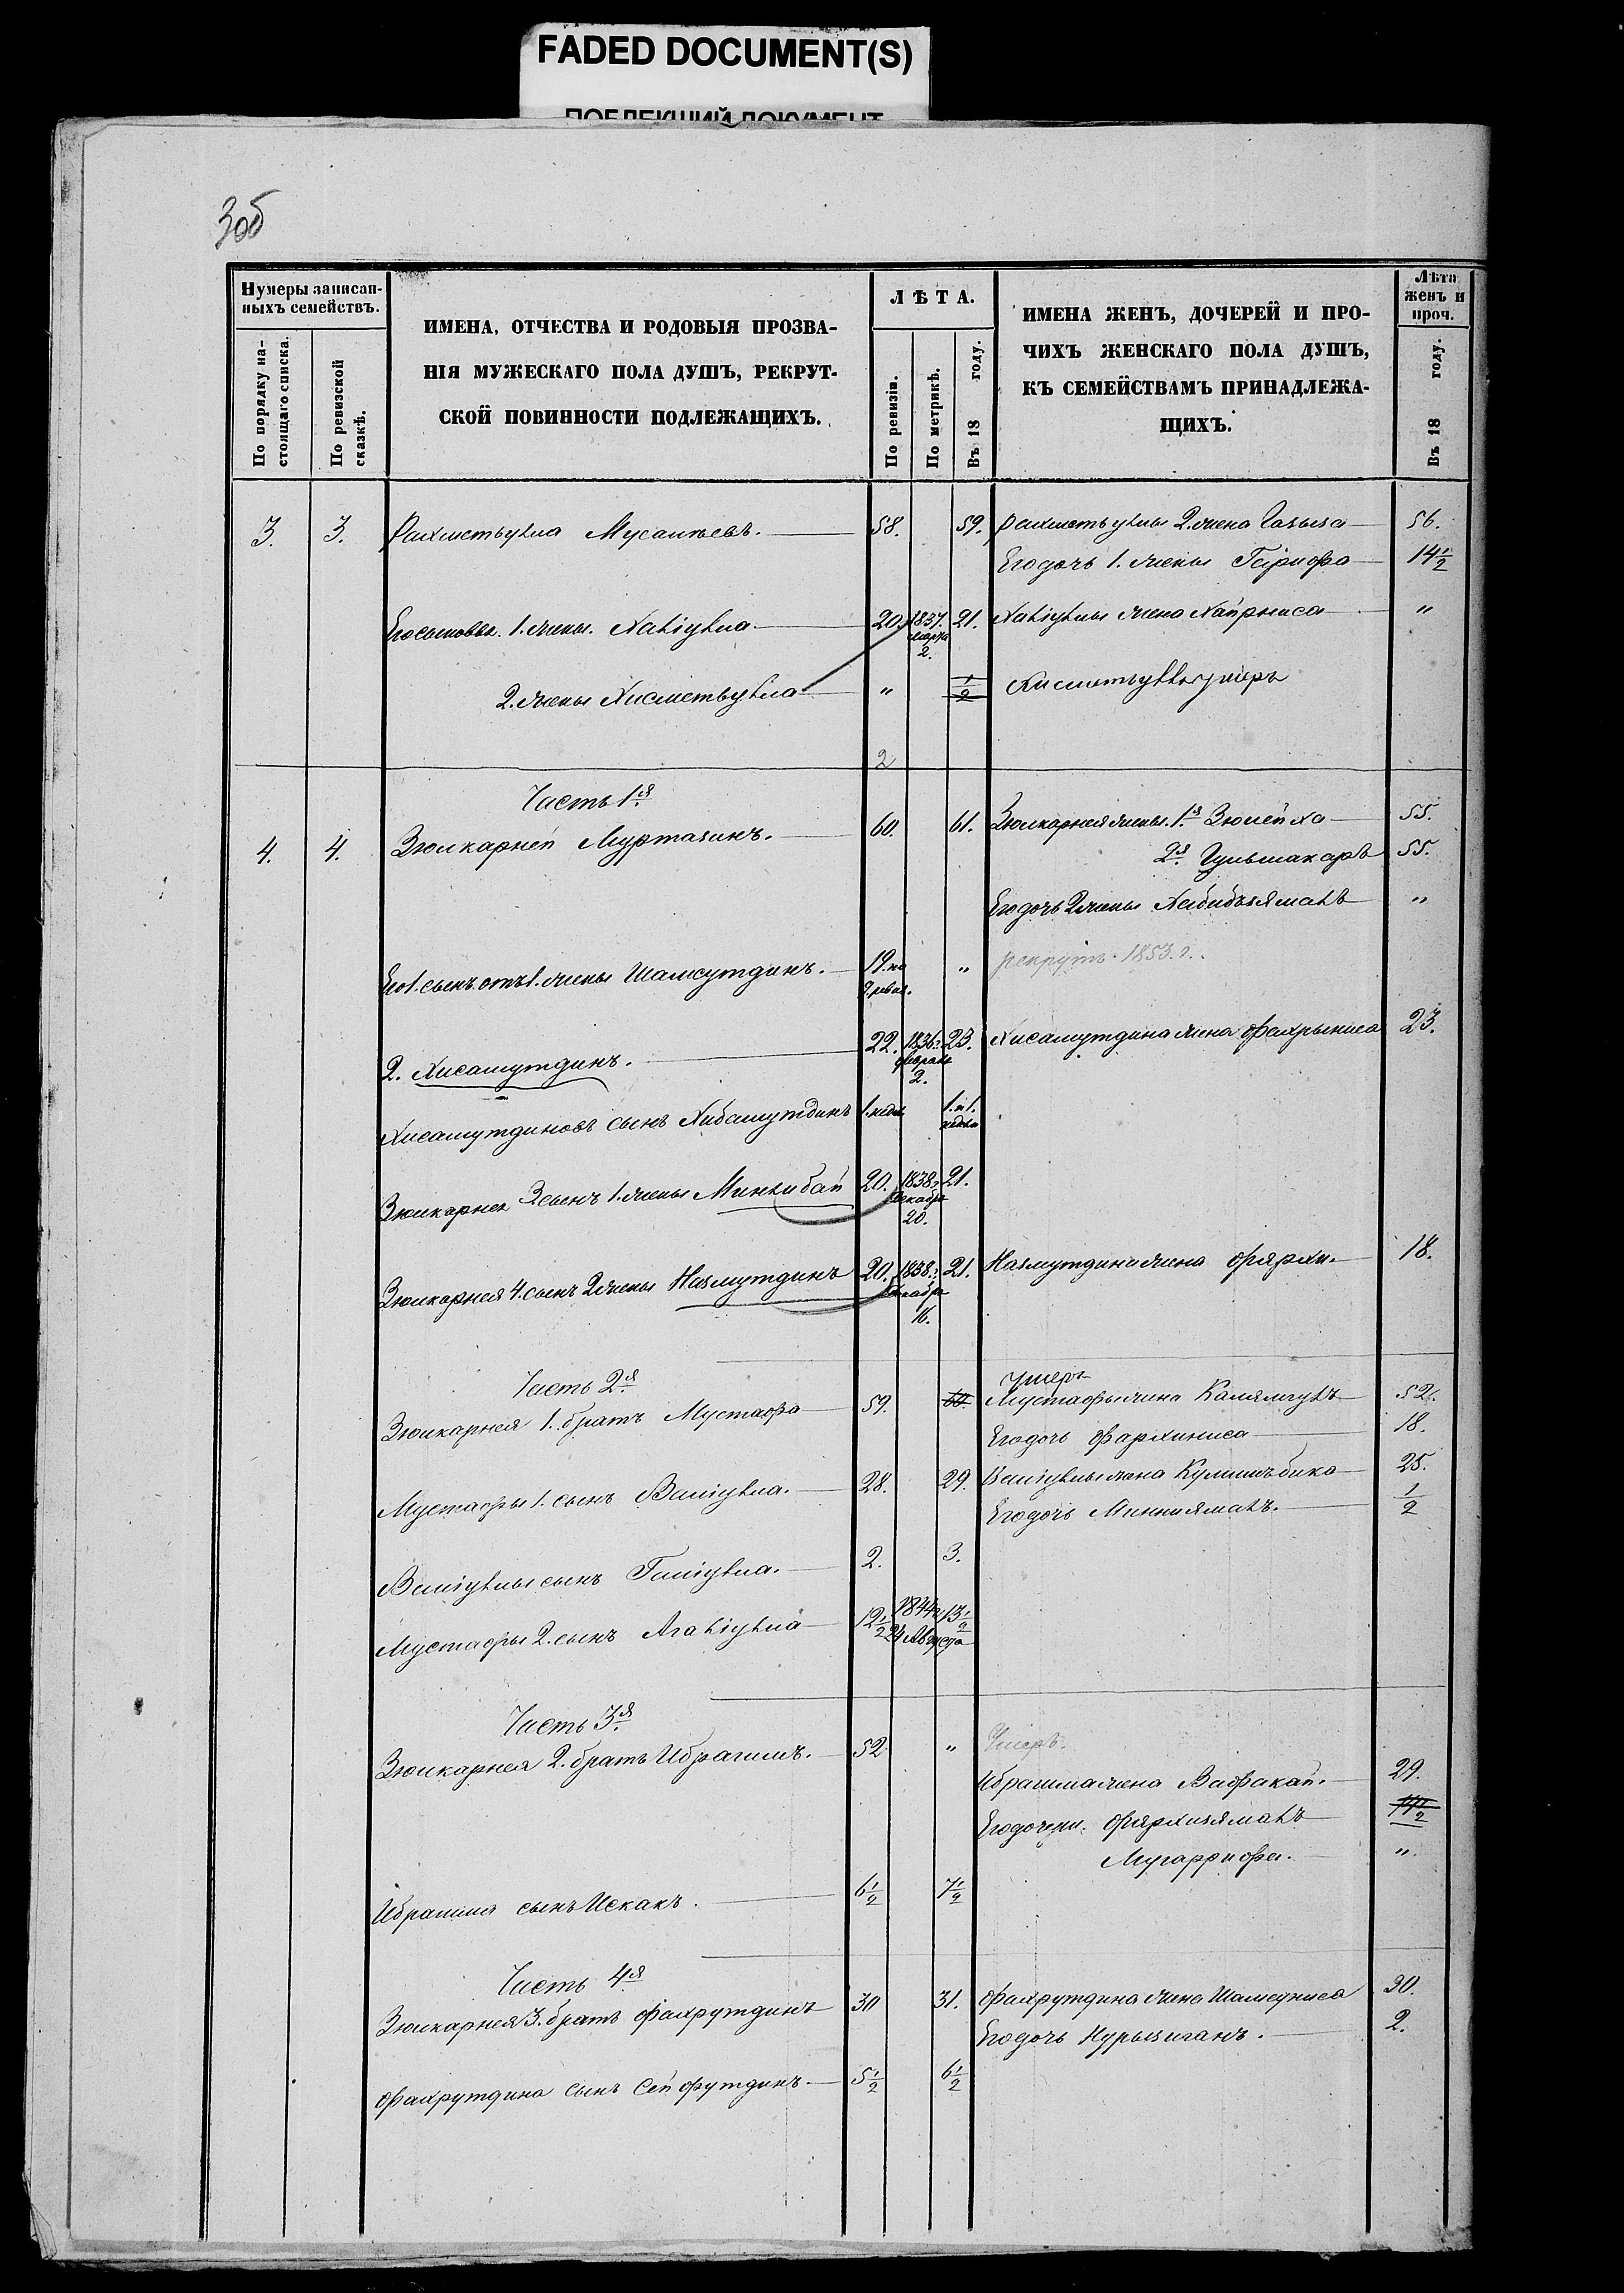 FADED DOCUMENT(S)
ПОБЛЕКШИЙ ДОКУМЕНТ
3об
Нумеры записан-
ныхъ семействъ.
По порядку на-
стоящаго списка.
По ревизской
сказкѣ.
ИМЕНА, ОТЧЕСТВА И РОДОВЫЯ ПРОЗВА-
НІЯ МУЖЕСКАГО ПОЛА ДУШЪ, РЕКРУТ-
СКОЙ ПОВИННОСТИ ПОДЛЕЖАЩИХЪ.
ЛѢТА.
По ревизіи.
По метрикѣ.
Въ 18 году.
ИМЕНА ЖЕНЪ, ДОЧЕРЕЙ И ПРО-
ЧИХЪ ЖЕНСКАГО ПОЛА ДУШЪ,
КЪ СЕМЕЙСТВАМЪ ПРИНАДЛЕЖА-
ЩИХЪ.
Лѣта
женъ и
проч.
Въ 18 году.
3. 3. Рахметьулла Мусалѣевъ. 58. 59. Рахметьуллы 2. жена 56.
Его дочь 1. жены Гарифа 14 1/2
Его сыновья. 1. жены. 20. 1837. марта 2. 21. жена "
2. жены Хисметьулла " 1/2 умеръ
2
Часть 1я
4. 4. Зюлкарней Муртазинъ. 60. 61. Зюлкарнея жены. 1я Зюлейха 55.
2я 55.
Его дочь 2 жены "
Его 1. сынъ отъ 1. жены Шамсутдинъ. 19. по 9. ревиз. " рекрутъ 1853. г.
2. Хисамутдинъ. 22. 1836. февраля 2. 23. Хисамутдина жена Фахрыниса 23.
Хисамутдиновъ сынъ 1. недѣл 1. и 1. недѣл
Зюлкарнея 3 сынъ 1. жены Миннибай 20. 1838. декабря 20. 21.
Зюлкарнея 4. сынъ 2 жены Назмутдинъ 20. 1838. декабря 16. 21. Назмутдина жена 18.
Часть 2я
умеръ
Зюлкарнея 1. братъ Мустафа 59. 60. Мустафы жена 52.
Его дочь Фархиниса 18.
Мустафы 1. сынъ Валіулла. 28. 29. Валіуллы жена 25.
Его дочь 1/2
Валіуллы сынъ Галіулла. 2. 3.
Мустафы 2. сынъ 12 1/2 1844 г. 24 Августа 13 1/2
Часть 3я
Зюлкарнея 2. братъ Ибрагимъ. 52 " Умеръ.
Ибрагима жена 29.
Его дочери. "
Ибрагима сынъ Искакъ. 6 1/2 7 1/2
Часть 4я
Зюлкарнея 3. братъ Фахрутдинъ 30 31. Фахрутдина жена Шамсуниса 30.
Его дочь 2.
Фахрутдина сынъ Сейфутдинъ. 5 1/2 6 1/2